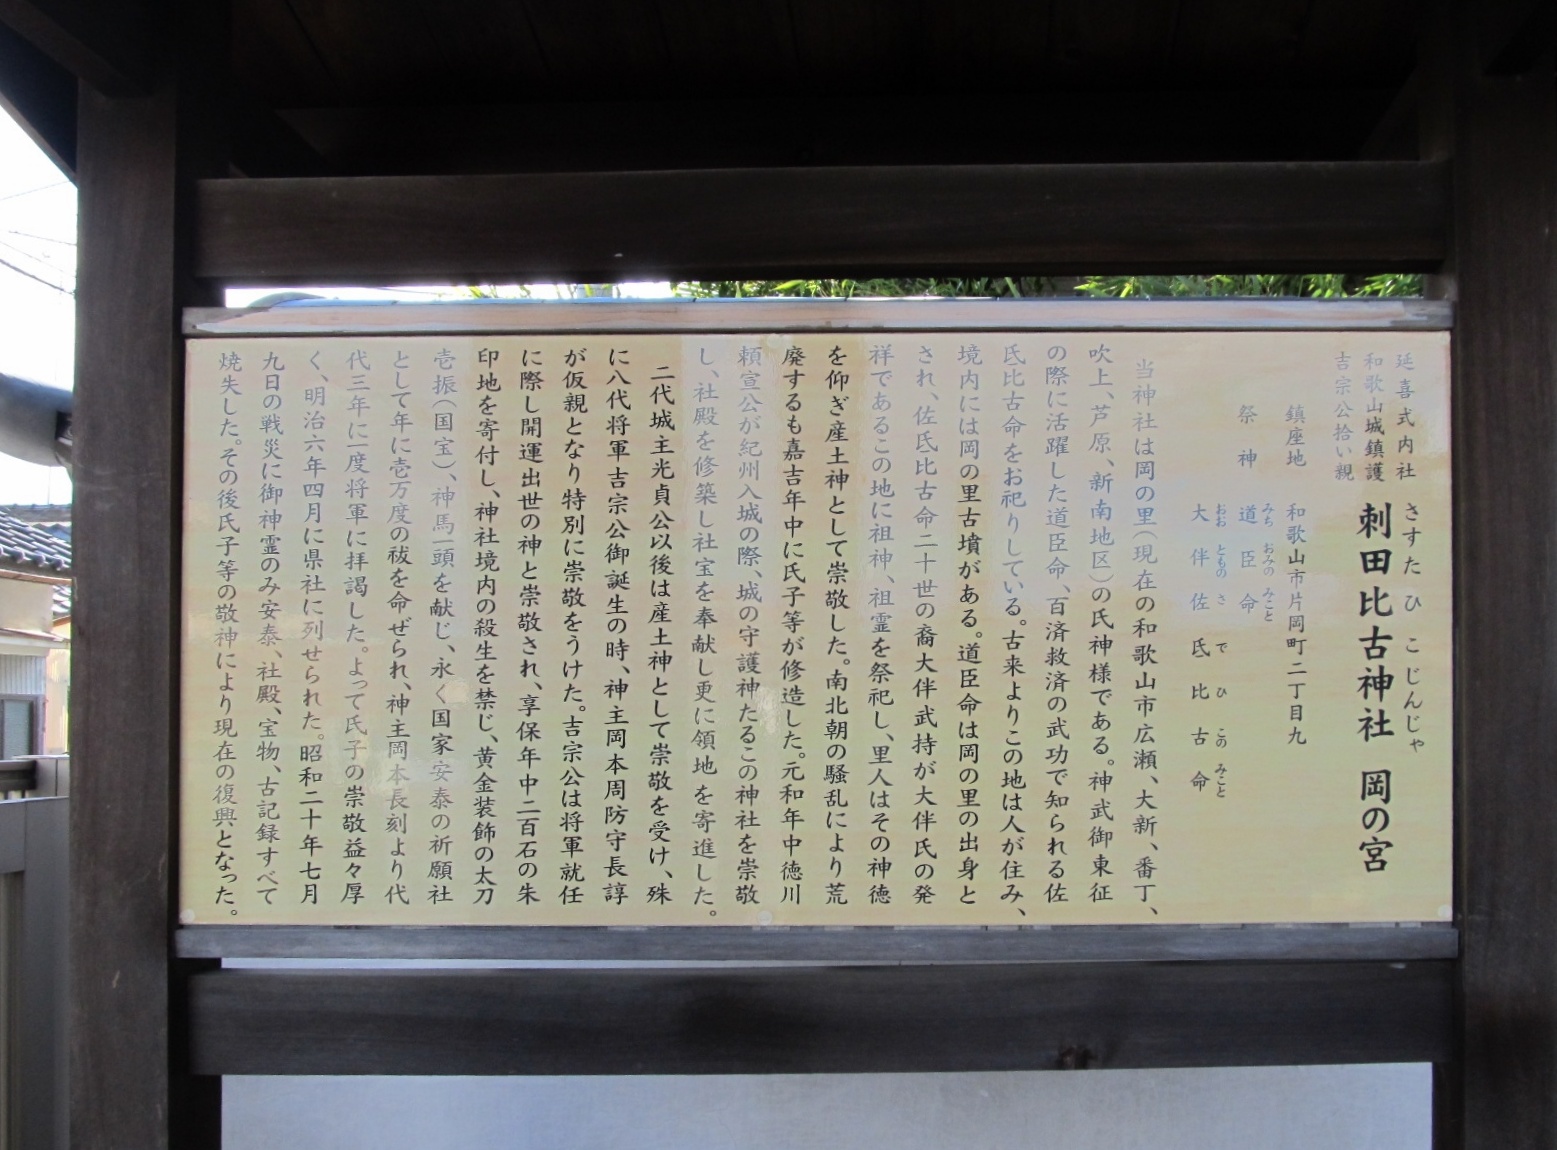 延喜式内社
和歌山城鎮護
吉宗公拾い親
さすたひこじんじゃ
刺田比古神社 岡の宮
鎮座地 和歌山市片岡町二丁目九
祭神 道臣命
みちおみのみこと
大伴佐氐比古命
おおとものさでひこのみこと
当神社は岡の里(現在の和歌山市広瀬、大新、番丁、
吹上、芦原、新南地区)の氏神様である。神武御東征
の際に活躍した道臣命、百済救済の武功で知られる佐
氐比古命をお祀りしている。古来よりこの地は人が住み、
境内には岡の里古墳がある。道臣命は岡の里の出身と
され、佐氐比古命二十世の裔大伴武持が大伴氏の発
祥であるこの地に祖神、祖霊を祭祀し、里人はその神徳
を仰ぎ産土神として崇敬した。南北朝の騒乱により荒
廃するも嘉吉年中に氏子等が修造した。元和年中徳川
頼宣公が紀州入城の際、城の守護神たるこの神社を崇敬
し、社殿を修築し社宝を奉献し更に領地を寄進した。
二代城主光貞公以後は産土神として崇敬を受け、殊
に八代将軍吉宗公御誕生の時、神主岡本周防守長諄
が仮親となり特別に崇敬をうけた。吉宗公は将軍就任
に際し開運出世の神と崇敬され、享保年中二百石の朱
印地を寄付し、神社境内の殺生を禁じ、黄金装飾の太刀
壱振(国宝)、神馬一頭を献じ、永く国家安泰の祈願社
として年に壱万度の祓を命ぜられ、神主岡本長刻より代
代三年に一度将軍に拝謁した。よって氏子の崇敬益々厚
く、明治六年四月に県社に列せられた。昭和二十年七月
九日の戦災に御神霊のみ安泰、社殿、宝物、古記録すべて
焼失した。その後氏子等の敬神により現在の復興となった。